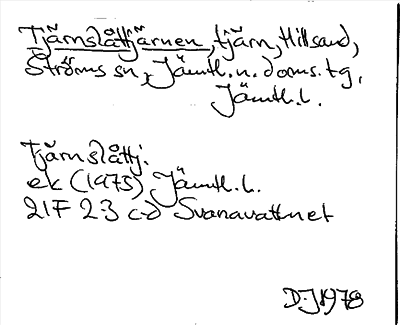 Tjärnslåttjärnen, tjärn, Hillsand,
Ströms sn, Jämtl. n. doms. tg,
Jämtl. l.
Tjärnslåttj.
ek (1975) Jämtl. l.
21F 2-3 c-d Svanavattnet
DJ 1978